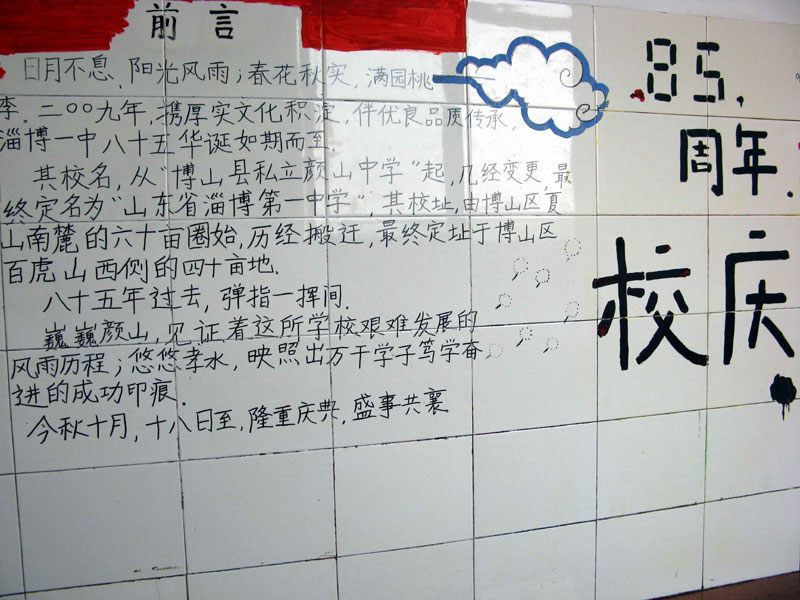 前言
日月不息,阳光风雨;春花秋实,满园桃
李.二〇〇九年,携厚实文化积淀,伴优良品质传承,
淄博一中八十五华诞如期而至.
其校名,从“博山县私立颜山中学”起,几经变更,最
终定名为“山东省淄博第一中学”,其校址,由博山区夏
山南麓的六十亩圈始,历经搬迁,最终定址于博山区
百虎山西侧的四十亩地.
八十五年过去,弹指一挥间.
巍巍颜山,见证着这所学校艰难发展的
风雨历程;悠悠孝水,映照出万千学子笃学奋
进的成功印痕.
今秋十月,十八日至,隆重庆典,盛事共襄
85.
周年.
校庆